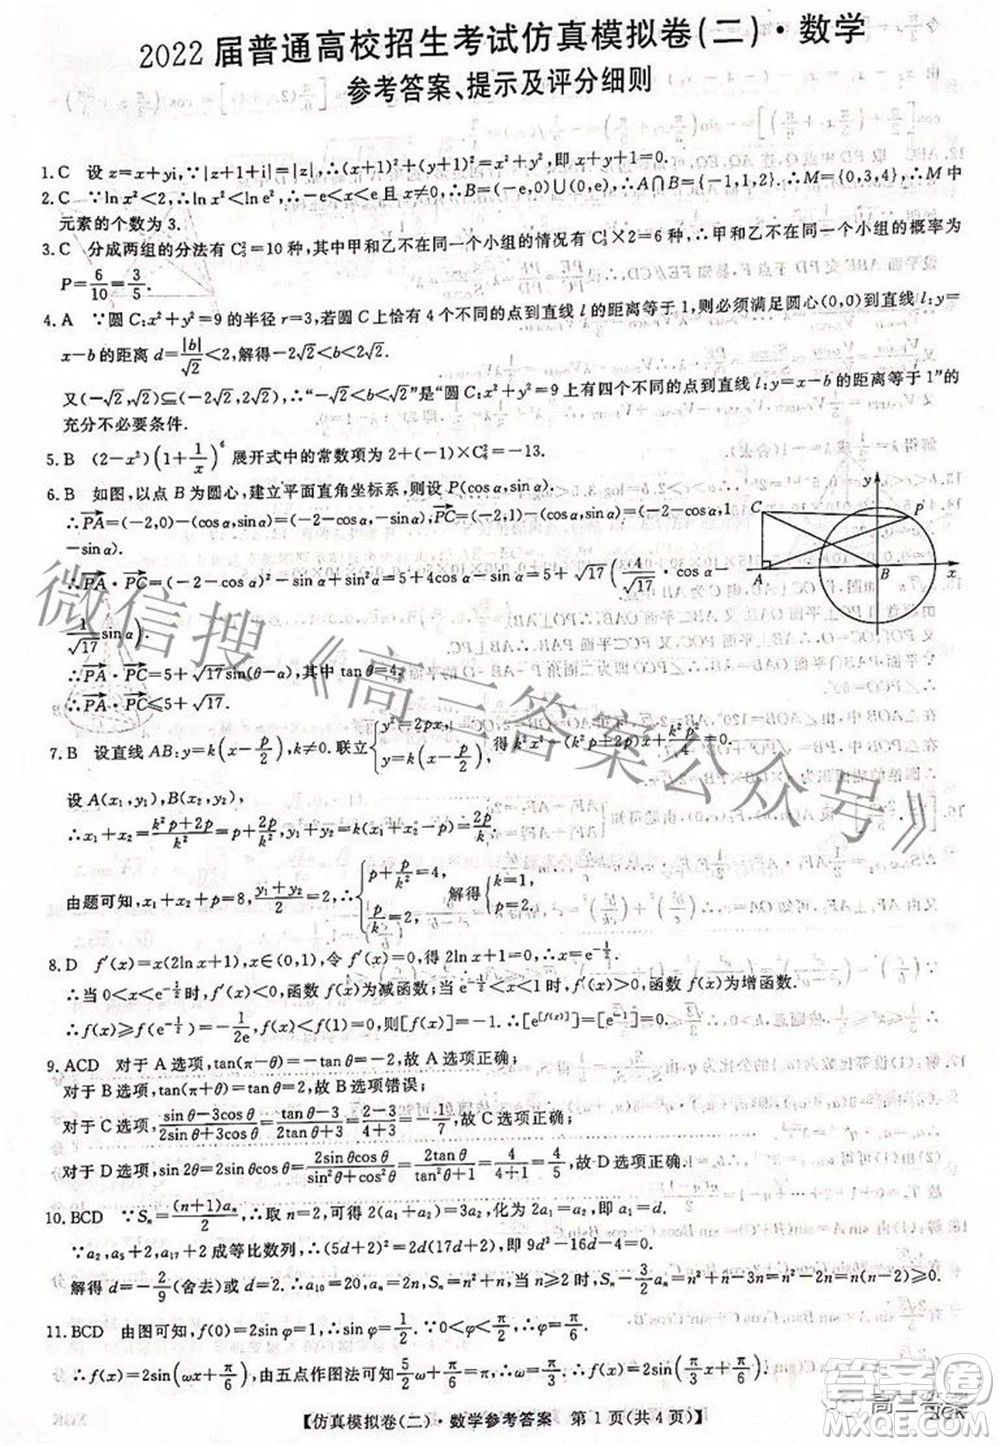 2022届普通高校招生考试仿真模拟卷(二)·数学
参考答案、提示及评分细则
1. C　设z=x+yi,∵|z+1+i|=|z|,∴(x+1)²+(y+1)²=x²+y²,即x+y+1=0.
2. C　∵ln x²<2,∴ln|x|<ln e,∴-e<x<e且x≠0,∴B=(-e,0)∪(0,e),∴A∩B={-1,1,2},∴M={0,3,4},∴M中
元素的个数为3.
3. C　分成两组的分法有C₅²=10种,其中甲和乙不在同一个小组的情况有C₃¹×2=6种,∴甲和乙不在同一个小组的概率为
P=6/10=3/5.
4. A　∵圆C:x²+y²=9的半径r=3,若圆C上恰有4个不同的点到直线l的距离等于1,则必须满足圆心(0,0)到直线l:y=
x-b的距离d=|b|/√2<2,解得-2√2<b<2√2.
又(-√2,√2)⊆(-2√2,2√2),∴“-√2<b<√2”是“圆C:x²+y²=9上有四个不同的点到直线l:y=x-b的距离等于1”的
充分不必要条件.
5. B　(2-x³)(1+1/x)⁶展开式中的常数项为2+(-1)×C₆³=-13.
6. B　如图,以点B为圆心,建立平面直角坐标系,则设P(cos α,sin α).
∴PA=(-2,0)-(cos α,sin α)=(-2-cos α,-sin α),PC=(-2,1)-(cos α,sin α)=(-2-cos α,1
-sin α).
∴PA·PC=(-2-cos α)²-sin α+sin²α=5+4cos α-sin α=5+√17(4/√17·cos α-
1/√17 sin α).
∴PA·PC=5+√17sin(θ-α),其中tan θ=4,
∴PA·PC≤5+√17.
7. B　设直线AB:y=k(x-p/2),k≠0.联立{y²=2px, y=k(x-p/2), 得k²x²-(k²p+2p)x+k²p²/4=0.
设A(x₁,y₁),B(x₂,y₂),
∴x₁+x₂=(k²p+2p)/k²=p+2p/k²,y₁+y₂=k(x₁+x₂-p)=2p/k.
由题可知,x₁+x₂+p=8,(y₁+y₂)/2=2,∴{p+p/k²=4, p/k=2, 解得{k=1, p=2.
8. D　f′(x)=x(2ln x+1),x∈(0,1),令f′(x)=0,得2ln x+1=0,x=e^(-1/2).
∴当0<x<e^(-1/2)时,f′(x)<0,函数f(x)为减函数;当e^(-1/2)<x<1时,f′(x)>0,函数f(x)为增函数.
∴f(x)≥f(e^(-1/2))=-1/(2e),当0<x<1时,f(x)<0,则[f(x)]=-1.∴[e^[f(x)]]=[e⁻¹]=[1/e]=0.
9. ACD　对于A选项,tan(π-θ)=-tan θ=-2,故A选项正确;
对于B选项,tan(π+θ)=tan θ=2,故B选项错误;
对于C选项,(sin θ-3cos θ)/(2sin θ+3cos θ)=(tan θ-3)/(2tan θ+3)=(2-3)/(4+3)=-1/7,故C选项正确;
对于D选项,sin 2θ=2sin θcos θ=2sin θcos θ/(sin²θ+cos²θ)=2tan θ/(tan²θ+1)=4/(4+1)=4/5,故D选项正确.
10. BCD　∵Sₙ=(n+1)aₙ/2,∴取n=2,可得2(a₁+a₂)=3a₂,即2(2a₁+d)=3(a₁+d),即a₁=d.
∵a₂,a₅,a₁₇+2成等比数列,∴(5d+2)²=2d(17d+2),即9d²-16d-4=0.
解得d=-2/9(舍去)或d=2,∴a₁₀=20,aₙ=2n,Sₙ=n²+n,当n≥2时,Sₙ-3/2aₙ=n²+n-3n=n²-2n=n(n-2)≥0.
11. BCD　由图可知,f(0)=2sin φ=1,∴sin φ=1/2.∵0<φ<π/2,∴φ=π/6.
∴f(x)=2sin(ωx+π/6),由五点作图法可知5/2ω+π/6=π,∴ω=π/3,∴f(x)=2sin(π/3x+π/6),∴f(4)=2sin(4π/3+π/6)
【仿真模拟卷(二)·数学参考答案　第1页(共4页)】
XGK
微信搜《高三答案公众号》
y
C
P
A
B
x
答案圈
高三答案